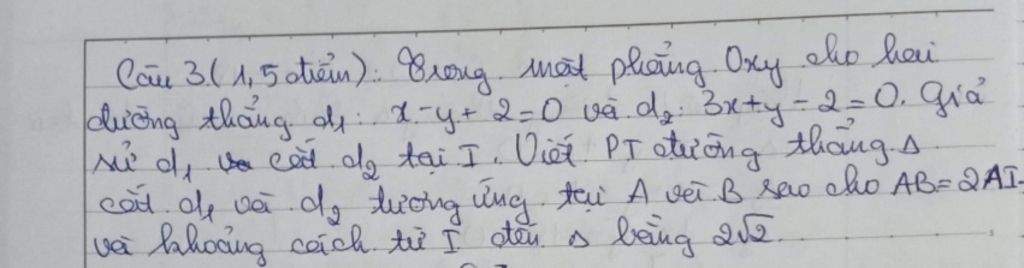 Câu 3.(1,5 điểm): Trong mặt phẳng Oxy cho hai
đường thẳng d₁: x-y+2=0 và d₂: 3x+y-2=0. Giả
sử d₁ cắt d₂ tại I. Viết PT đường thẳng Δ
cắt d₁ và d₂ tương ứng tại A và B sao cho AB=2AI
và khoảng cách từ I đến Δ bằng 2√2.